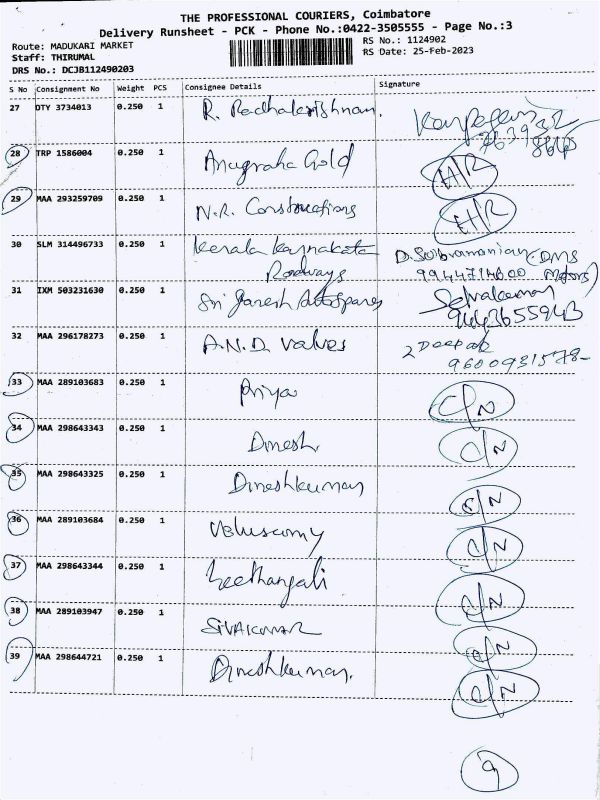 THE PROFESSIONAL COURIERS, Coimbatore
Delivery Runsheet - PCK - Phone No.:0422-3505555 - Page No.:3
Route: MADUKARI MARKET
RS No.: 1124902
Staff: THIRUMAL
RS Date: 25-Feb-2023
DRS No.: DCJB112490203
S No Consignment No Weight PCS Consignee Details Signature
27 DTY 3734013 0.250 1 R. Radhakrishnan.
28 TRP 1586004 0.250 1 Anugraha Gold H/R
29 MAA 293259709 0.250 1 N.R. Constructions H/R
30 SLM 314496733 0.250 1 Kerala Karnakata D. Subramanian
Roadways
31 IXM 503231630 0.250 1 Sri Ganesh Autospares Selvakumar
9443655943
32 MAA 296178273 0.250 1 A.N.D. Valves Deepak
9600931578
33 MAA 289103683 0.250 1 Priya C/N
34 MAA 298643343 0.250 1 Dinesh C/N
35 MAA 298643325 0.250 1 Dineshkumar C/N
36 MAA 289103684 0.250 1 Veluswamy C/N
37 MAA 298643344 0.250 1 C/N
38 MAA 289103947 0.250 1 SIVAKUMAR C/N
39 MAA 298644721 0.250 1 Dineshkumar. C/N
9